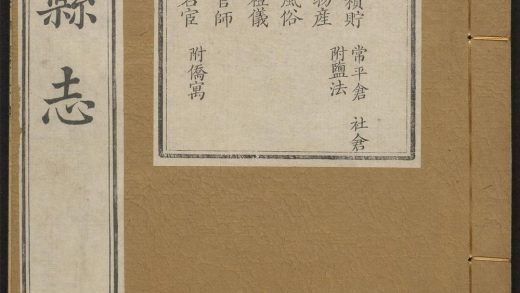 積貯 常平倉 社倉
物産 附鹽法
風俗
禮儀
官師
名宦 附僑寓
縣志